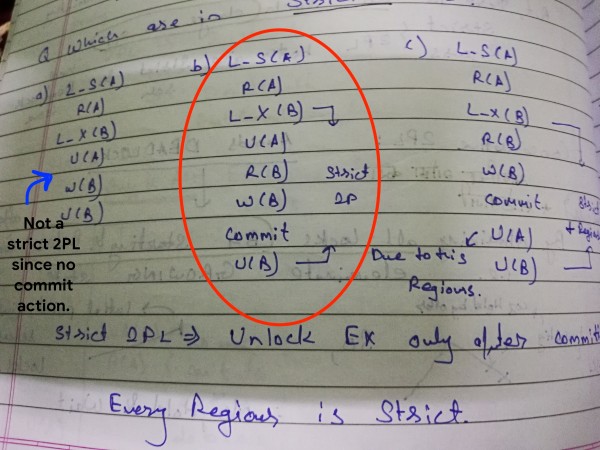 Q Which are in Strict
a) L-S(A)
R(A)
L-X(B)
U(A)
W(B)
U(B)
Not a
strict 2PL
since no
commit
action.
b) L-S(A)
R(A)
L-X(B)
U(A)
R(B) Strict
W(B) 2P
commit
U(B)
c) L-S(A)
R(A)
L-X(B)
R(B)
W(B)
commit Strict
U(A) + Regious
U(B)
Due to this
Regious.
Strict 2PL ⇒ Unlock EX only after commit
Every Regious is Strict.